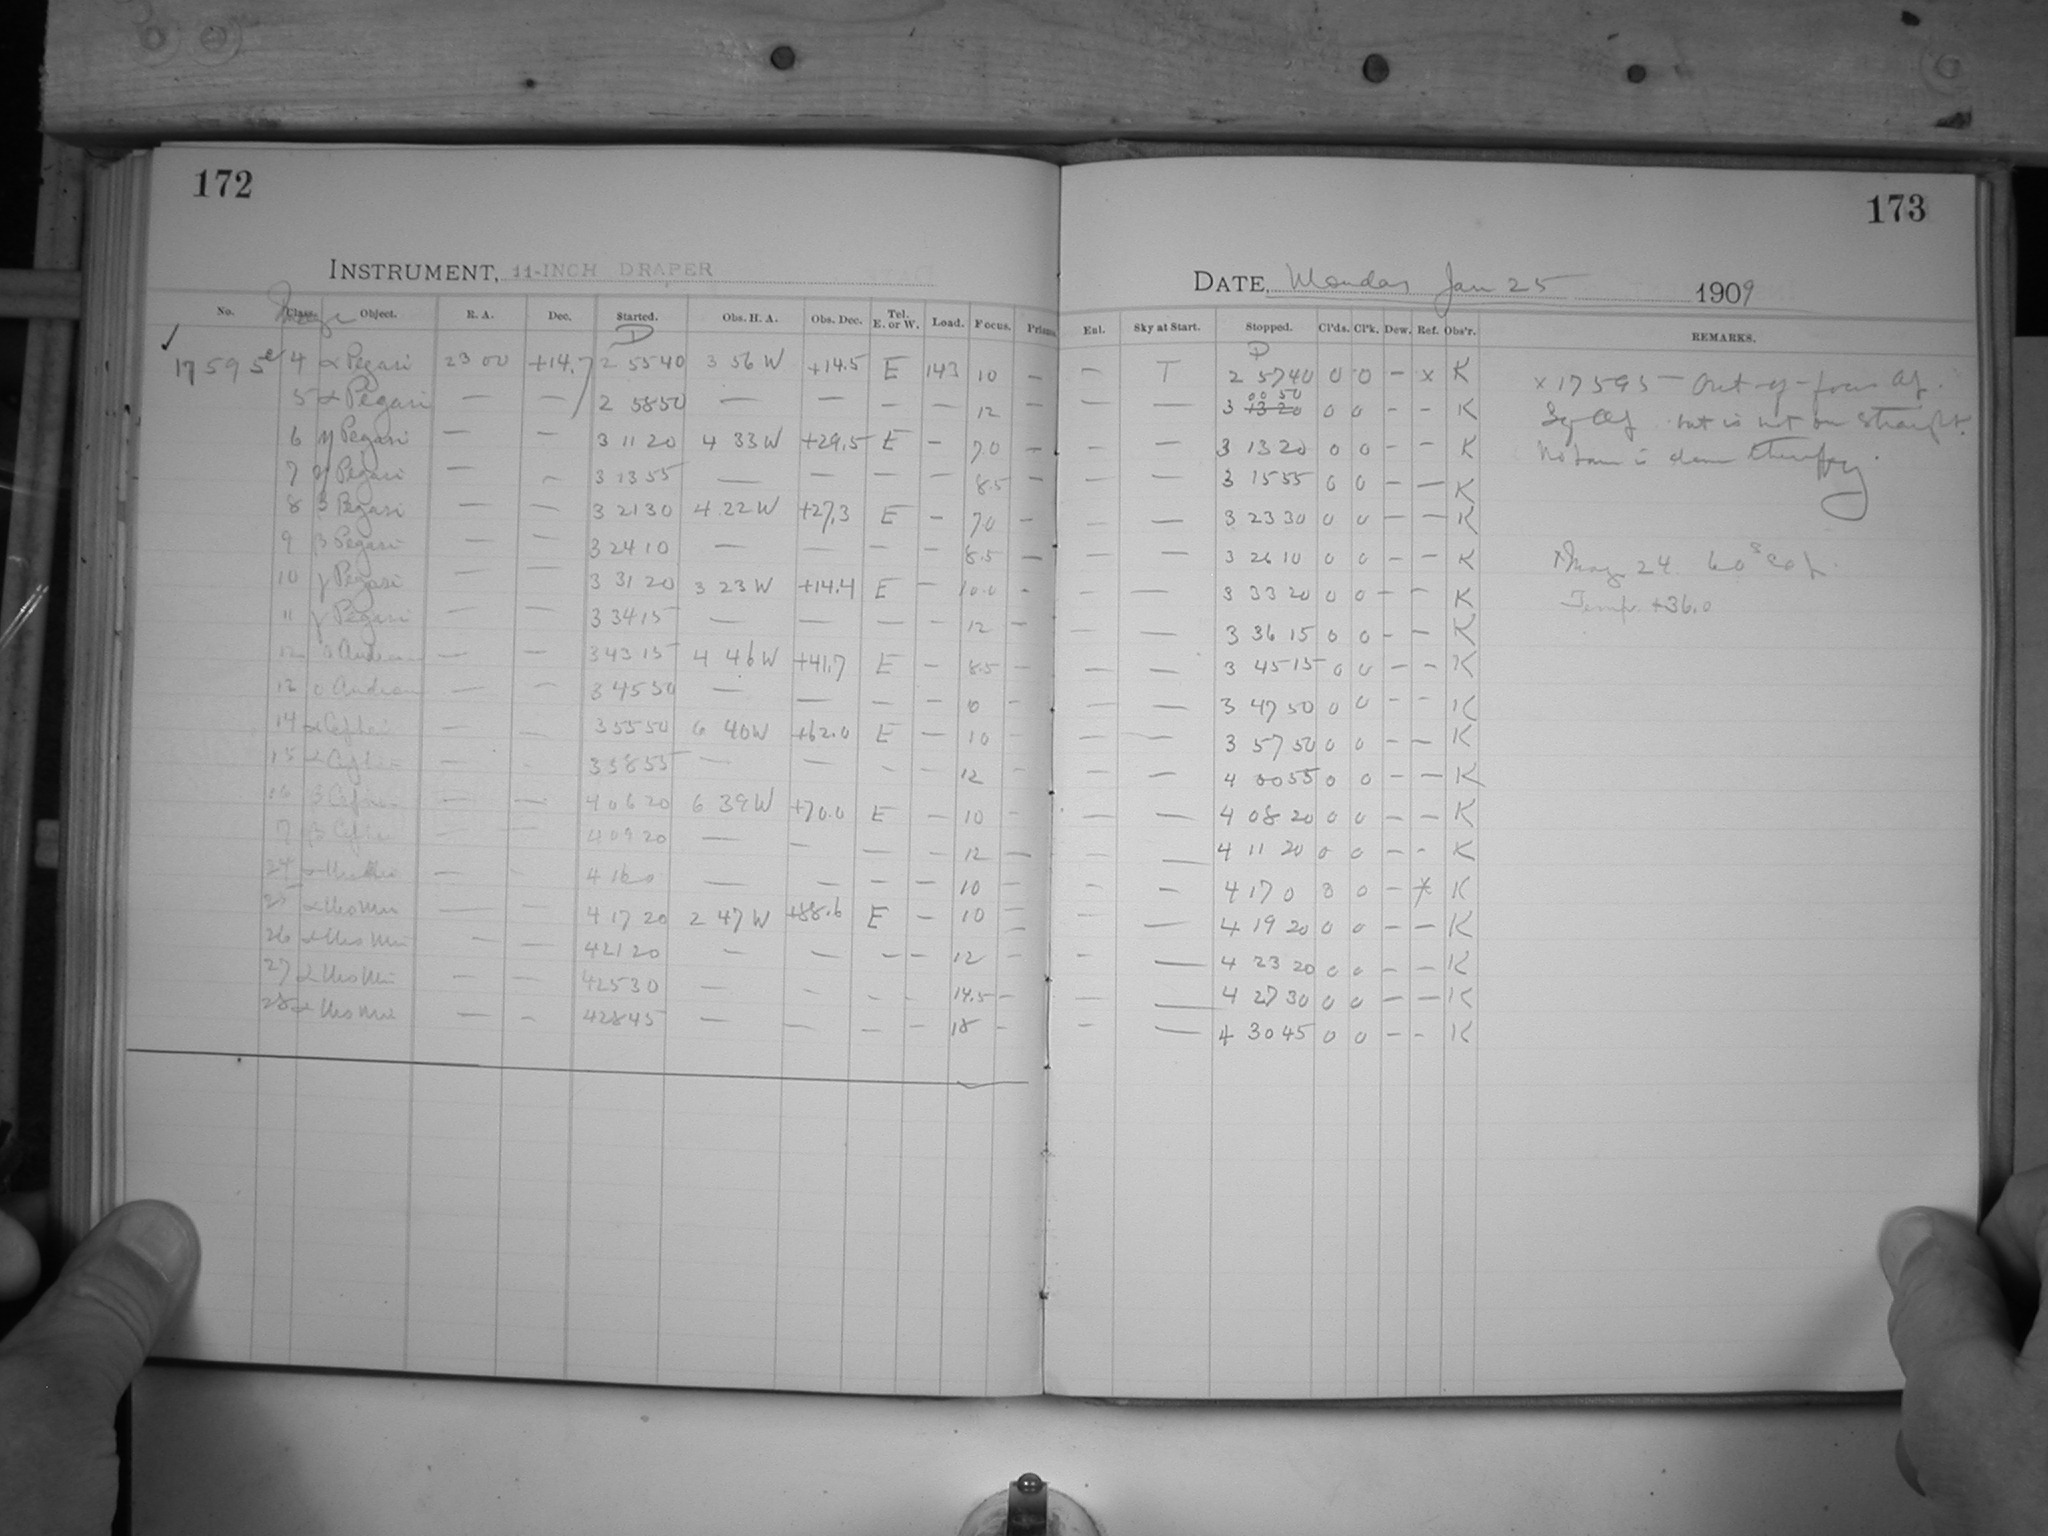 172
173
INSTRUMENT, 11-INCH DRAPER
DATE, Monday Jan 25 1909
No. Class. Image Object. R. A. Dec. Started. Obs. H. A. Obs. Dec. Tel. E. or W. Load. Focus. Prisms
Enl. Sky at Start. Stopped. Cl'ds. Cl'k. Dew. Ref. Obs'r. REMARKS.
D
D
✓ 17595 4 α Pegasi 23 00 +14.7 2 55 40 3 56 W +14.5 E 143 10 — — T 2 57 40 0 0 – x K
5 α Pegasi — — 2 58 50 — — — — 12 — — 3 00 50 0 0 – – K
6 η Pegasi — — 3 11 20 4 33 W +29.5 E – 7.0 — — — 3 13 20 0 0 – – K
7 η Pegasi — – 3 13 55 — — — — 8.5 – – — 3 15 55 0 0 – — K
8 β Pegasi — — 3 21 30 4 22 W +27.3 E – 7.0 – – — 3 23 30 0 0 — — K
9 β Pegasi — — 3 24 10 — — — — 8.5 — – — 3 26 10 0 0 – – K
10 γ Pegasi — — 3 31 20 3 23 W +14.4 E – 10.0 – – — 3 33 20 0 0 – – K
11 γ Pegasi — — 3 34 15 — — — — 12 — — — 3 36 15 0 0 – – K
12 o Androm — – 3 43 15 4 46 W +41.7 E – 8.5 — — — 3 45 15 0 0 – – K
o Androm — – 3 45 50 — — — — 10 – — — 3 47 50 0 0 – – K
14 α Cephei – – 3 55 50 6 40 W +62.0 E – 10 – – — 3 57 50 0 0 – — K
15 α Cephei – – 3 58 55 — — – – 12 – – — 4 00 55 0 0 – — K
16 β Cephei — — 4 06 20 6 39 W +70.0 E – 10 – — — 4 08 20 0 0 – — K
17 β Cephei — — 4 09 20 — – — – 12 — – — 4 11 20 0 0 – - K
24 α Urs Min — – 4 16 0 — — — — 10 — – – 4 17 0 0 0 – x K
25 α Urs Min — – 4 17 20 2 47 W +88.6 E – 10 — – — 4 19 20 0 0 – — K
26 α Urs Min – — 4 21 20 – — – – 12 – – — 4 23 20 0 0 – – K
27 α Urs Min — — 4 25 30 — – – – 14.5 – — — 4 27 30 0 0 — — K
28 α Urs Min — – 4 28 45 — — — – 18 – – — 4 30 45 0 0 – – K
x 17595 – Out-of-focus
but is not on straight.
24 60s
Temp. +36.0